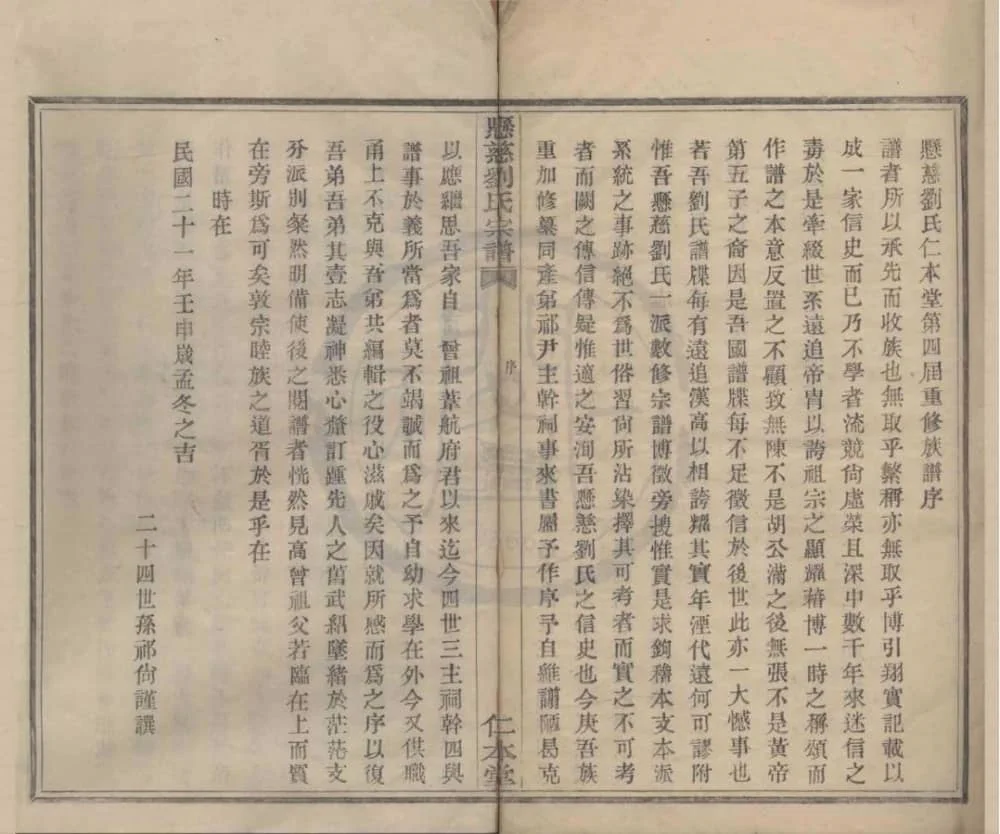 懸慈劉氏仁本堂第四屆重修族譜序
譜者所以承先而收族也無取乎繁稱亦無取乎博引翔實記載以
成一家信史而已乃不學者流競尙虛榮且深中數千年來迷信之
毒於是牽綴世系遠追帝胄以誇祖宗之顯耀藉博一時之稱頌而
作譜之本意反置之不顧致無陳不是胡公滿之後無張不是黃帝
第五子之裔因是吾國譜牒每不足徵信於後世此亦一大憾事也
若吾劉氏譜牒每有遠追漢高以相誇耀其實年湮代遠何可謬附
惟吾懸慈劉氏一派數修宗譜博徵旁搜惟實是求鉤稽本支本派
系統之事跡絕不爲世俗習尙所沾染擇其可考者而實之不可考
者而闕之傳信傳疑惟適之安洵吾懸慈劉氏之信史也今庚吾族
重加修纂同產第祁尹主幹祠事來書屬予作序予自維謭陋曷克
懸慈劉氏宗譜
序
仁本堂
以應繼思吾家自 曾祖葦航府君以來迄今四世三主祠幹四與
譜事於義所當爲者莫不竭誠而爲之予自幼求學在外今又供職
甬上不克與吾弟共編輯之役心滋戚矣因就所感而爲之序以復
吾弟吾弟其壹志凝神悉心釐訂踵先人之舊武紹墜緒於茫茫支
分派別粲然明備使後之閱譜者恍然見高曾祖父若臨在上而質
在旁斯爲可矣敦宗睦族之道胥於是乎在
時在
民國二十一年壬申歲孟冬之吉
二十四世孫祁尙謹譔